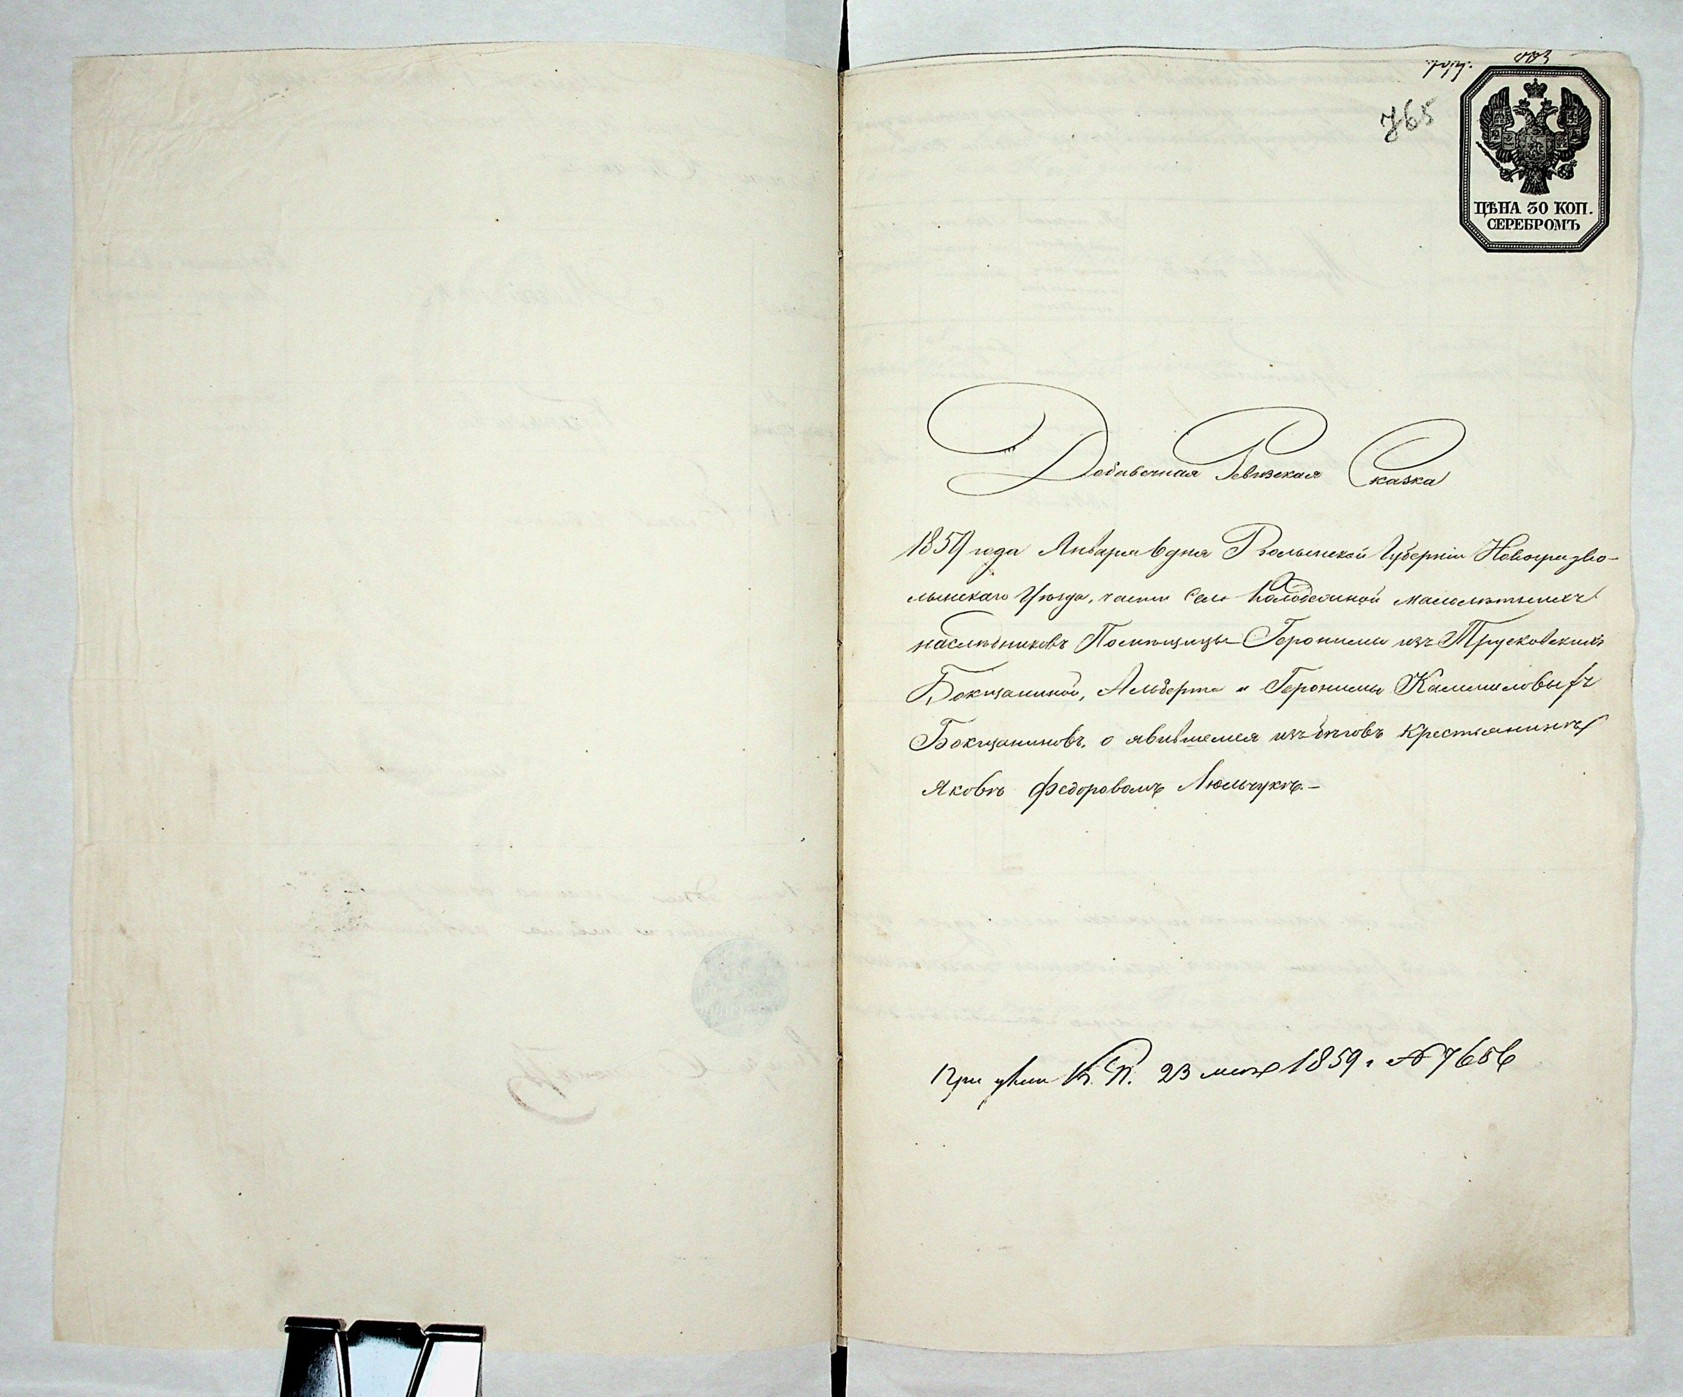 765
ЦѢНА 30 КОП.
СЕРЕБРОМЪ
Добавочная Ревизская Сказка
1859 года Января 6 дня Волынской Губерніи Новоградво-
лынскаго Уѣзда, части села Колодесной малолѣтныхъ
наслѣдниковъ Помѣщицы Геронимы изъ Трусковскихъ
Бокщаниной, Альберта и Геронимы Камиловыхъ
Бокщаниновъ, о явившемся изъ бѣговъ крестьянинѣ
Яковѣ Федоровомъ Люльчукѣ.–
При указѣ К. П. 23 мая 1859 г № 7656